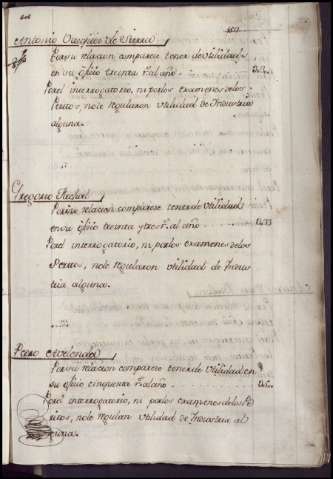 Antonio de Sierra
Por su relacion comparece tener de utilidad
en su oficio treinta rs. al año
Por el interrogatorio, ni por los examenes de los
Peritos, no le regularon utilidad de Industria
alguna.
Gregorio
Por su relacion comparece tener de utilidad
en su oficio treinta y tres rs. al año
Por el interrogatorio, ni por los examenes de los
Peritos, no le regularon utilidad de Indus
tria alguna.
Pedro Avelenda
Por su relacion comparece tener de utilidad en
su oficio cinquenta rs. al año
Por el interrogatorio, ni por los examenes de los Pe
ritos, no le regulan utilidad de Industria al
guna.